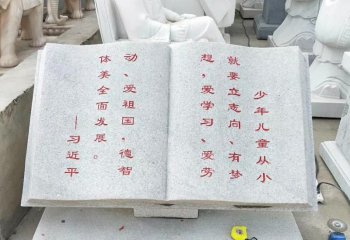 少年儿童从小
就要立志向、有梦
想，爱学习、爱劳
动、爱祖国，德智
体美全面发展。
——习近平